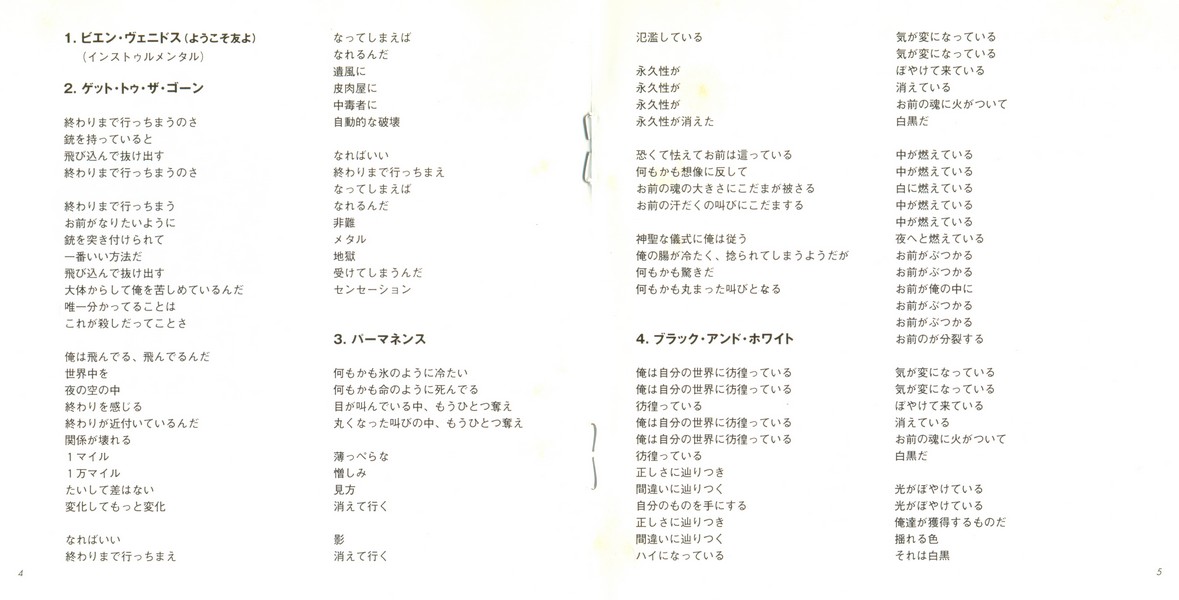 1. ビエン・ヴェニドス(ようこそ友よ)
(インストゥルメンタル)
2. ゲット・トゥ・ザ・ゴーン
終わりまで行っちまうのさ
銃を持っていると
飛び込んで抜け出す
終わりまで行っちまうのさ
終わりまで行っちまう
お前がなりたいように
銃を突き付けられて
一番いい方法だ
飛び込んで抜け出す
大体からして俺を苦しめているんだ
唯一分かってることは
これが殺しだってことさ
俺は飛んでる、飛んでるんだ
世界中を
夜の空の中
終わりを感じる
終わりが近付いているんだ
関係が壊れる
1マイル
1万マイル
たいして差はない
変化してもっと変化
なればいい
終わりまで行っちまえ
4
なってしまえば
なれるんだ
遺風に
皮肉屋に
中毒者に
自動的な破壊
なればいい
終わりまで行っちまえ
なってしまえば
なれるんだ
非難
メタル
地獄
受けてしまうんだ
センセーション
3. パーマネンス
何もかも氷のように冷たい
何もかも命のように死んでる
目が叫んでいる中、もうひとつ奪え
丸くなった叫びの中、もうひとつ奪え
薄っぺらな
憎しみ
見方
消えて行く
影
消えて行く
氾濫している
永久性が
永久性が
永久性が
永久性が消えた
恐くて怯えてお前は這っている
何もかも想像に反して
お前の魂の大きさにこだまが被さる
お前の汗だくの叫びにこだまする
神聖な儀式に俺は従う
俺の腸が冷たく、捻られてしまうようだが
何もかも驚きだ
何もかも丸まった叫びとなる
4. ブラック・アンド・ホワイト
俺は自分の世界に彷徨っている
俺は自分の世界に彷徨っている
彷徨っている
俺は自分の世界に彷徨っている
俺は自分の世界に彷徨っている
彷徨っている
正しさに辿りつき
間違いに辿りつく
自分のものを手にする
正しさに辿りつき
間違いに辿りつく
ハイになっている
気が変になっている
気が変になっている
ぼやけて来ている
消えている
お前の魂に火がついて
白黒だ
中が燃えている
中が燃えている
白に燃えている
中が燃えている
中が燃えている
夜へと燃えている
お前がぶつかる
お前がぶつかる
お前が俺の中に
お前がぶつかる
お前がぶつかる
お前のが分裂する
気が変になっている
気が変になっている
ぼやけて来ている
消えている
お前の魂に火がついて
白黒だ
光がぼやけている
光がぼやけている
俺達が獲得するものだ
揺れる色
それは白黒
5